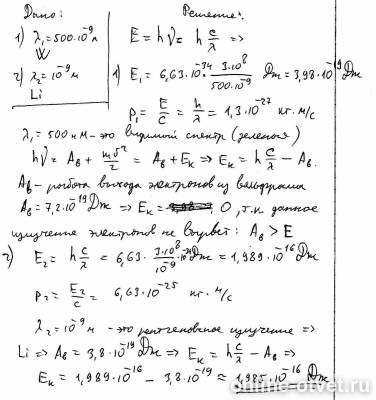 Дано:
1) λ₁=500·10⁻⁹ м
W
2) λ₂=10⁻⁹ м
Li
Решение:
E=hν= h c/λ =>
1) E₁ = 6,63·10⁻³⁴ · 3·10⁸/500·10⁻⁹ Дж = 3,98·10⁻¹⁹ Дж
p₁ = E/c = h/λ = 1,3·10⁻²⁷ кг·м/с
λ₁ = 500 нм - это видимый спектр (зеленая)
hν = Aв + mv²/2 = Aв + Eк => Eк = h c/λ - Aв.
Aв - работа выхода электронов из вольфрама
Aв = 7,2·10⁻¹⁹ Дж => Eк = 0, т.к данное
излучение электронов не вырвет: Aв > E
2) E₂ = h c/λ = 6,63 · 3·10⁸/10⁻⁹ · 10⁻³⁴ Дж = 1,989·10⁻¹⁶ Дж
p₂ = E₂/c = 6,63·10⁻²⁵ кг·м/с
λ₂ = 10⁻⁹ м - это рентгеновское излучение =>
Li => Aв = 3,8·10⁻¹⁹ Дж => Eк = h c/λ - Aв =>
Eк = 1,989·10⁻¹⁶ - 3,8·10⁻¹⁹ = 1,985·10⁻¹⁶ Дж
online-otvet.ru